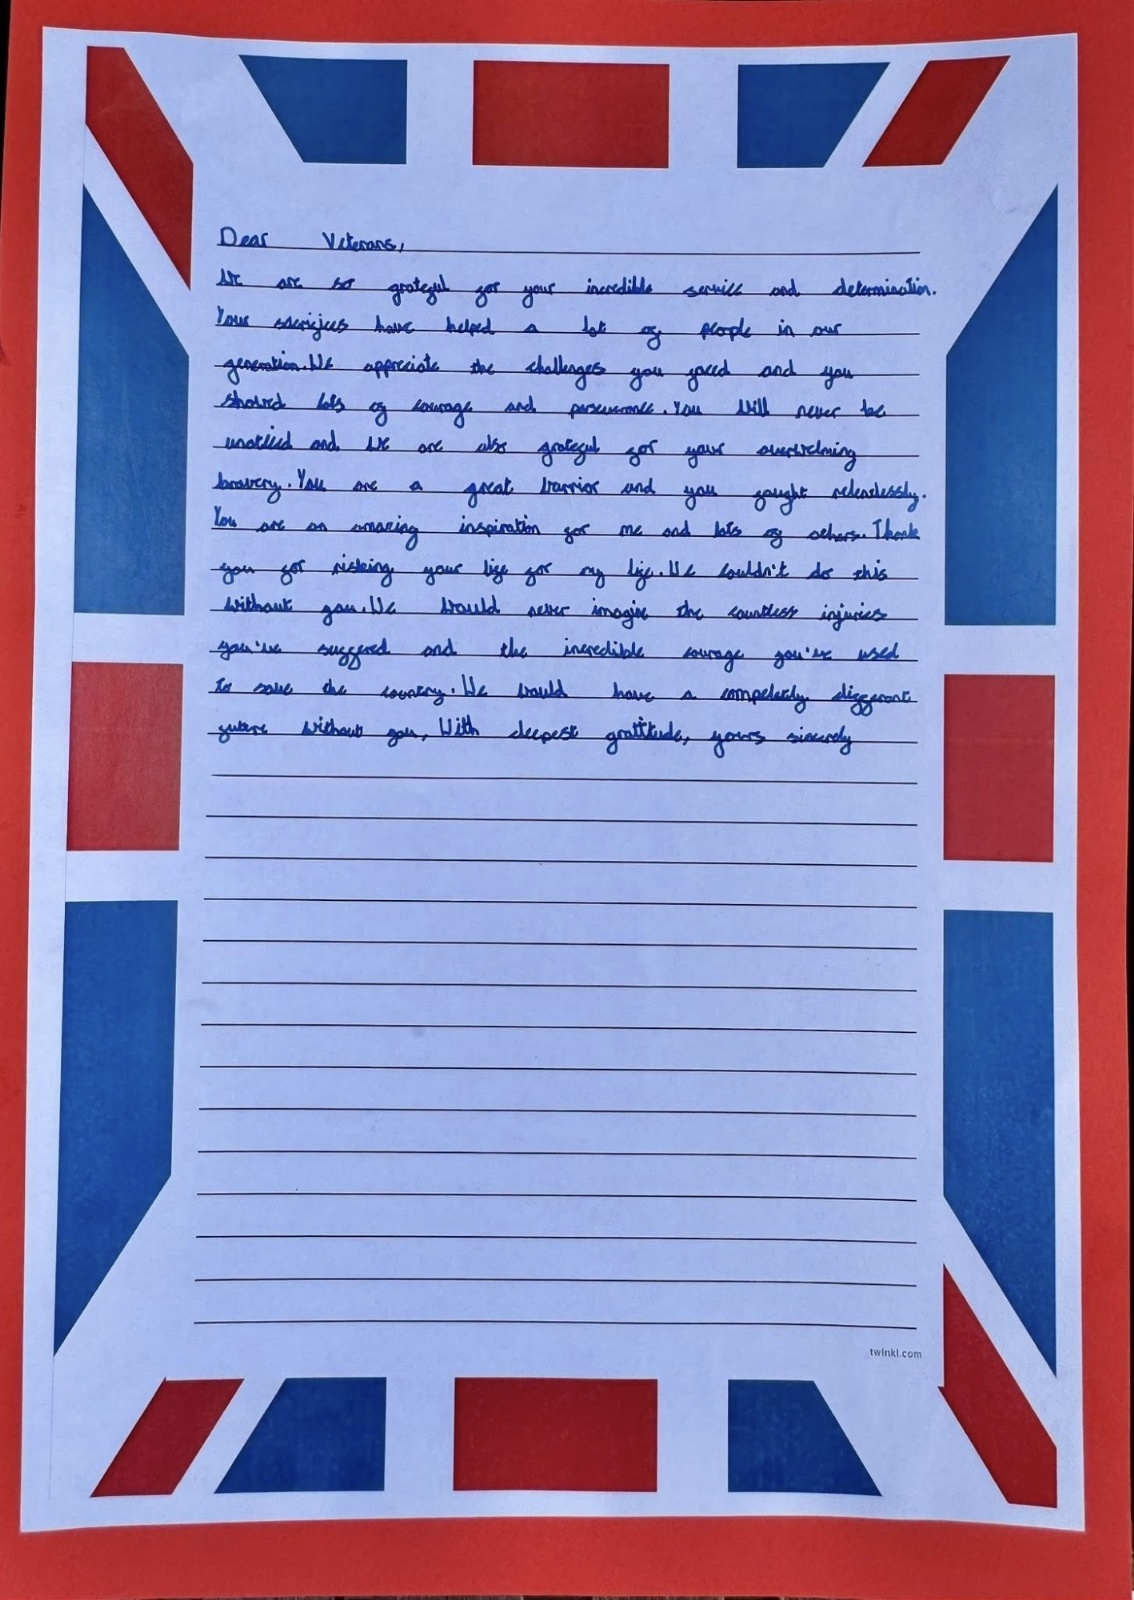 Dear Veterans,
We are so grateful for your incredible service and determination.
Your sacrifices have helped a lot of people in our
generation. We appreciate the challenges you faced and you
showed lots of courage and perseverance. You will never be
and we are also grateful for your overwelming
bravery. You are a great warrior and you fought relentlessly.
You are an amazing inspiration for me and lots of others. Thank
you for risking your life for my life. We couldn't do this
without you. We would never imagine the countless injuries
you've suffered and the incredible courage you've used
to save the country. We would have a completely different
future without you, With deepest gratitude, yours sincerely
twinkl.com